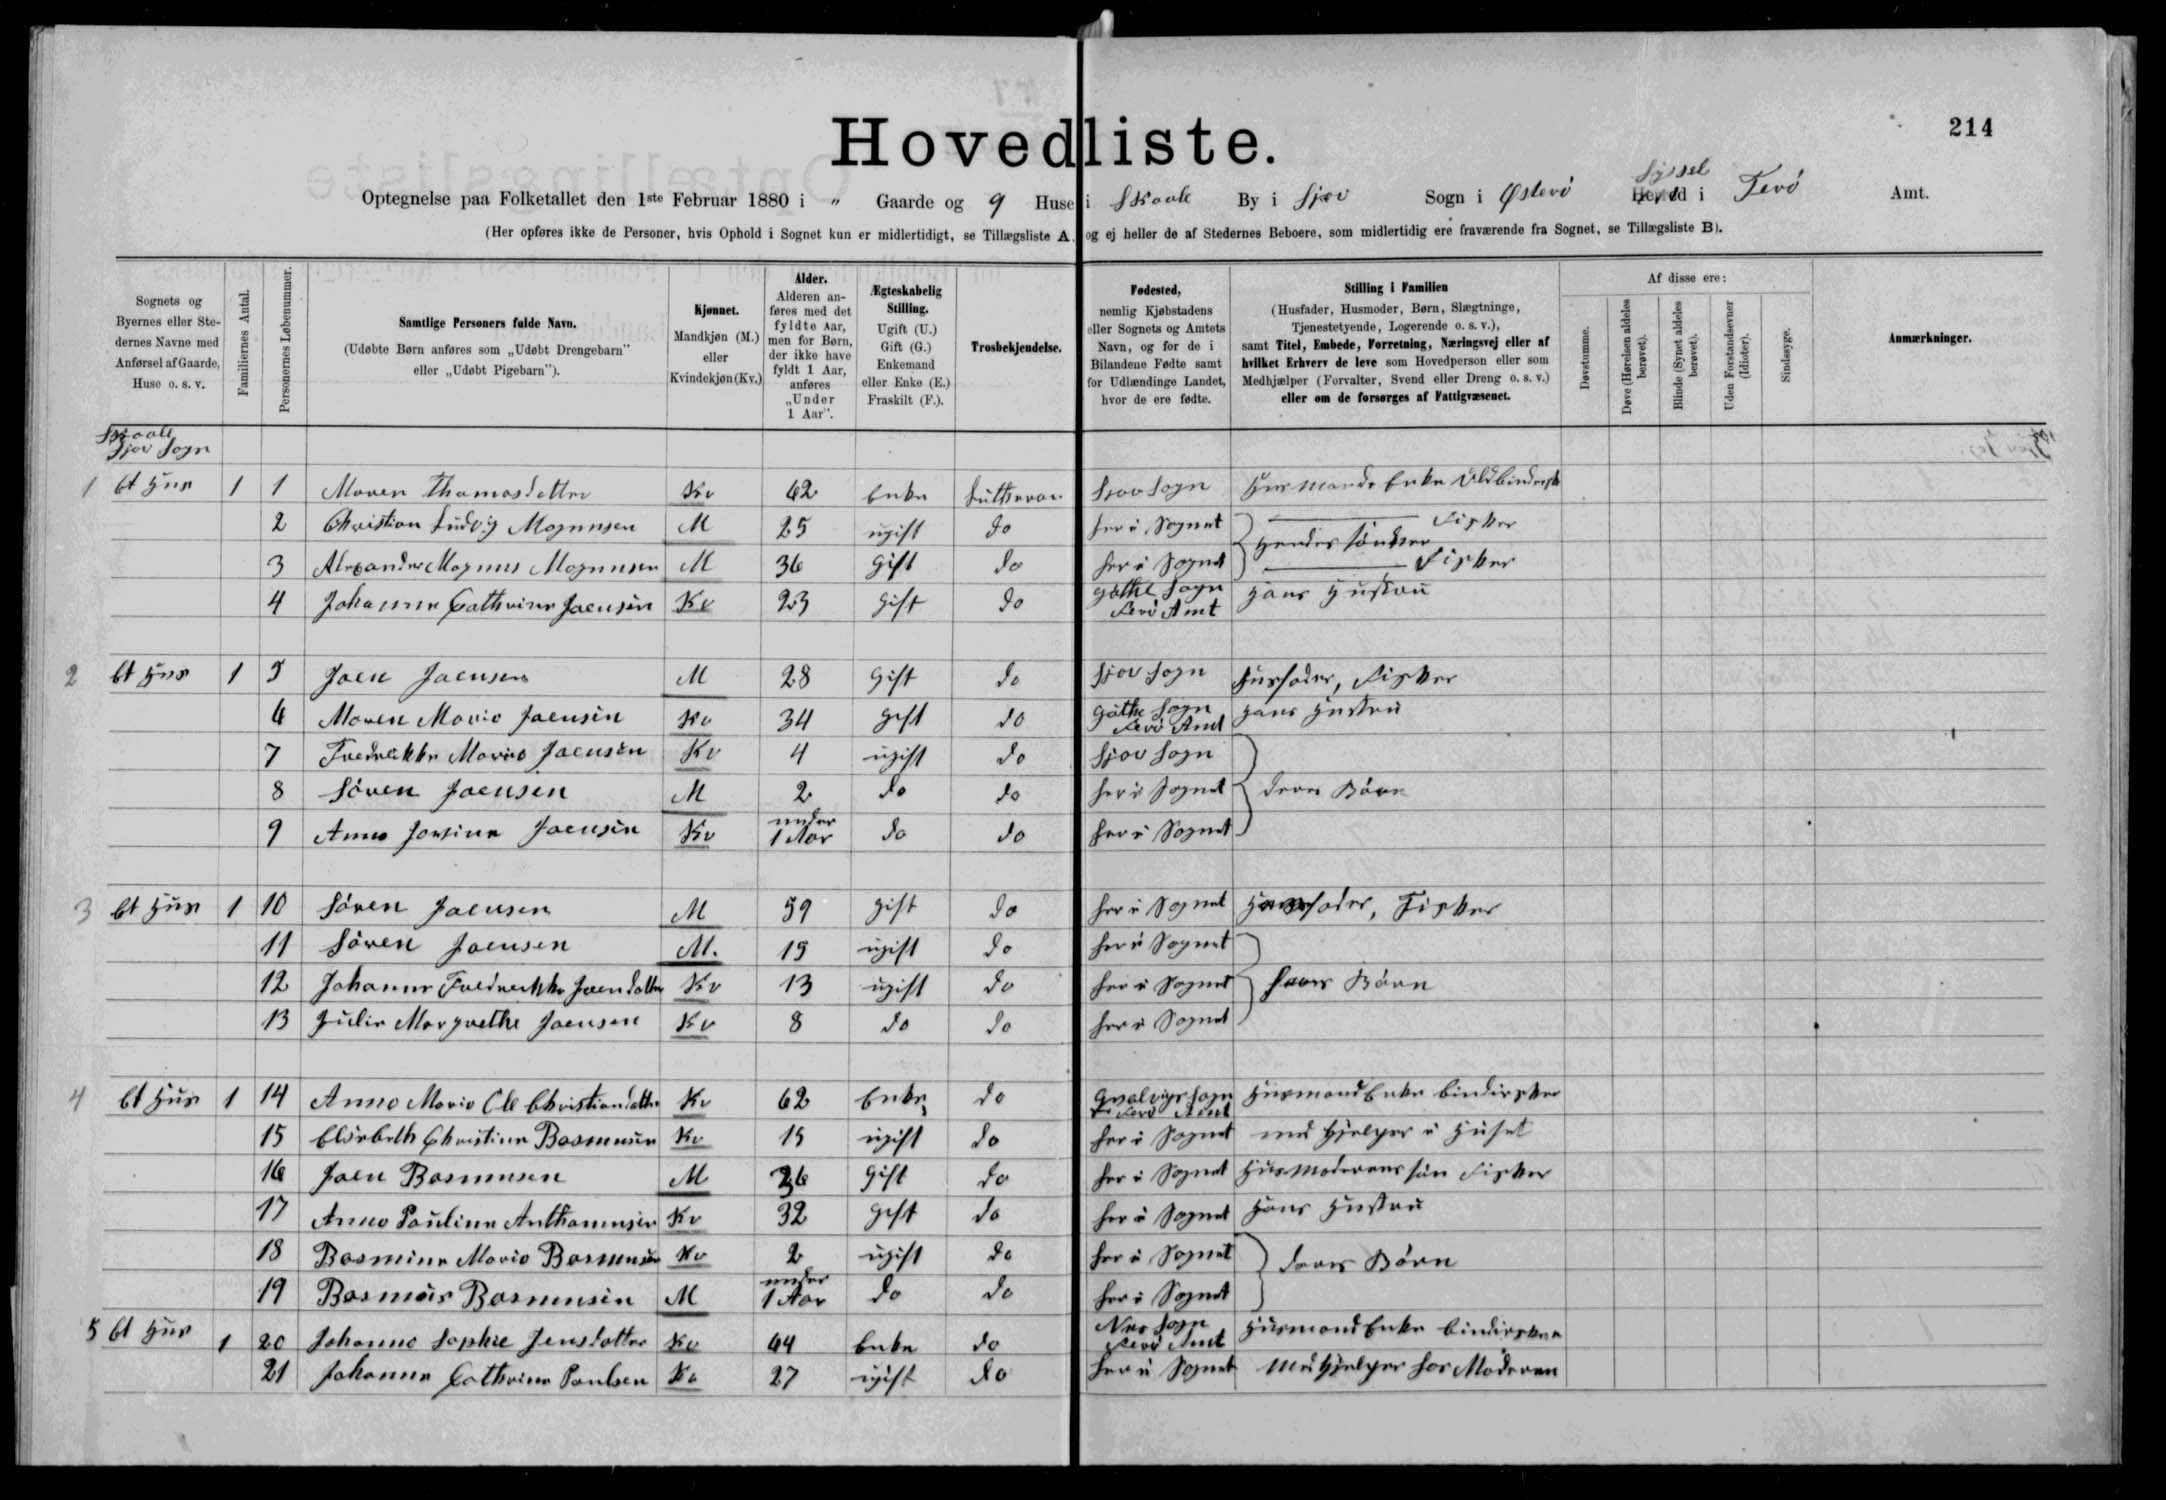 214
Hovedliste.
Optegnelse paa Folketallet den 1ste Februar 1880 i " Gaarde og 9 Huse i Skaale By i Sjov Sogn i Østerö Syssel Herred i Ferö Amt.
(Her opføres ikke de Personer, hvis Ophold i Sognet kun er midlertidigt, se Tillægsliste A, og ej heller de af Stedernes Beboere, som midlertidig ere fraværende fra Sognet, se Tillægsliste B).
Sognets og Byernes eller Stedernes Navne med Anførsel af Gaarde, Huse o. s. v.
Familiernes Antal.
Personernes Løbenummer.
Samtlige Personers fulde Navn.
(Udøbte Børn anføres som „Udøbt Drengebarn" eller „Udøbt Pigebarn").
Kjønnet.
Mandkjøn (M.) eller Kvindekjøn (Kv.)
Alder.
Alderen anføres med det fyldte Aar, men for Børn, der ikke have fyldt 1 Aar, anføres „Under 1 Aar".
Ægteskabelig Stilling.
Ugift (U.) Gift (G.) Enkemand eller Enke (E.) Fraskilt (F.).
Trosbekjendelse.
Fødested,
nemlig Kjøbstadens eller Sognets og Amtets Navn, og for de i Bilandene Fødte samt for Udlændinge Landet, hvor de ere fødte.
Stilling i Familien
(Husfader, Husmoder, Børn, Slægtninge, Tjenestetyende, Logerende o. s. v.),
samt Titel, Embede, Forretning, Næringsvej eller af hvilket Erhverv de leve som Hovedperson eller som Medhjælper (Forvalter, Svend eller Dreng o. s. v.) eller om de forsørges af Fattigvæsenet.
Af disse ere:
Døvstumme.
Døve (Hørelsen aldeles berøvet).
Blinde (Synet aldeles berøvet).
Uden Forstandsevner (Idioter).
Sindssyge.
Anmærkninger.
Skaale
Sjov Sogn
1 Et Hus 1 1 Maren Thomasdatter Kv 62 Enke Lutheran Sjov Sogn Husmands Enke
2 Christian Ludvig Magnusen M 25 ugift do her i Sognet Fisker
Hendes Sönner
3 Alexander Magnus Magnusen M 36 gift do her i Sognet Fisker
4 Johanne Cathrine Joensen Kv 23 gift do Göthe Sogn Ferö Amt Hans Hustru
2 Et Hus 1 5 Joen Joensen M 28 gift do Sjov Sogn Husfader, Fisker
6 Maren Marie Joensen Kv 34 gift do Göthe Sogn Ferö Amt Hans Hustru
7 Frederikke Marie Joensen Kv 4 ugift do Sjov Sogn
8 Sören Joensen M 2 do do her i Sognet deres Börn
9 Anna Joensen Kv under 1 Aar do do her i Sognet
3 Et Hus 1 10 Sören Joensen M 59 gift do her i Sognet Husfader, Fisker
11 Sören Joensen M. 15 ugift do her i Sognet
12 Johanne Frederikke Joensdatter Kv 13 ugift do her i Sognet Börn
13 Julie Margrethe Joensen Kv 8 do do her i Sognet
4 Et Hus 1 14 Anne Marie Ole Christiandatter Kv 62 Enke do Qvalvigs Sogn Ferö Amt Husmand Enke binderske
15 Elisabeth Christine Rasmusen Kv 15 ugift do her i Sognet med hjelper i Huset
16 Joen Rasmusen M 36 gift do her i Sognet Husmoderens Sön Fisker
17 Anne Pauline Anthoniusen Kv 32 gift do her i Sognet Hans Hustru
18 Rasmine Marie Rasmusen Kv 2 ugift do her i Sognet
deres Börn
19 Rasmus Rasmusen M under 1 Aar do do her i Sognet
5 Et Hus 1 20 Johanne Sophie Jensdatter Kv 64 Enke do Nes Sogn Ferö Amt Husmand Enke binderske
21 Johanne Cathrine Poulsen Kv 27 ugift do her i Sognet Medhjelper for Moderen